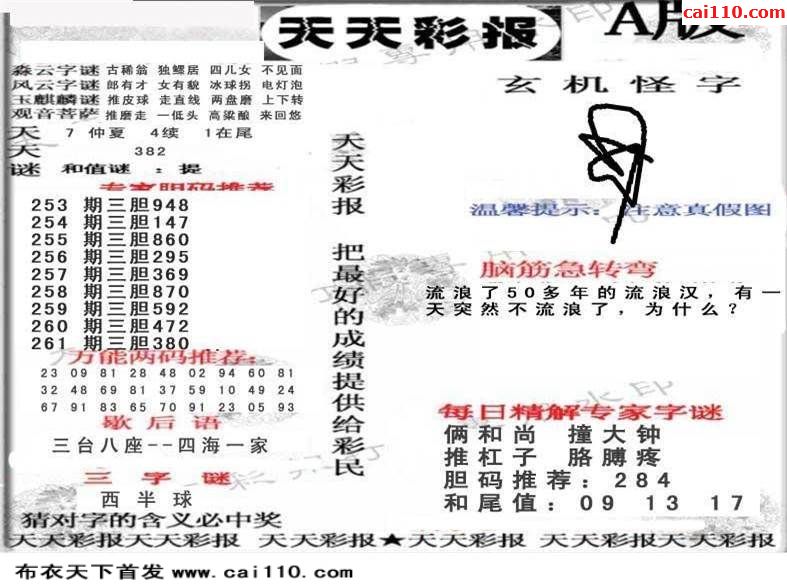 cai110.com
天天彩报 A版
淼云字谜 古稀翁 独鳏居 四儿女 不见面
风云字谜 郎有才 女有貌 冰球拐 电灯泡
玉麒麟谜 推皮球 走直线 两盘磨 上下转
观音菩萨 推磨走 一低头 高粱酿 来回悠
天 7 仲夏 4续 1在尾
天 382
谜 和值谜 : 提
专家胆码推荐
253 期三胆948
254 期三胆147
255 期三胆860
256 期三胆295
257 期三胆369
258 期三胆870
259 期三胆592
260 期三胆472
261 期三胆380
万能两码推荐:
23 09 81 28 48 02 94 60 81
32 48 69 81 37 59 10 49 24
67 91 83 65 70 91 23 05 93
歇后语
三台八座--四海一家
三字谜
西半球
猜对字的含义必中奖
天天彩报 把最好的成绩提供给彩民
玄机怪字
温馨提示: 注意真假图
脑筋急转弯
流浪了50多年的流浪汉，有一
天突然不流浪了，为什么？
每日精解专家字谜
俩和尚 撞大钟
推杠子 胳膊疼
胆码推荐: 284
和尾值: 09 13 17
天天彩报天天彩报 天天彩报★天天彩报 天天彩报天天彩报
布衣天下首发 www.cai110.com